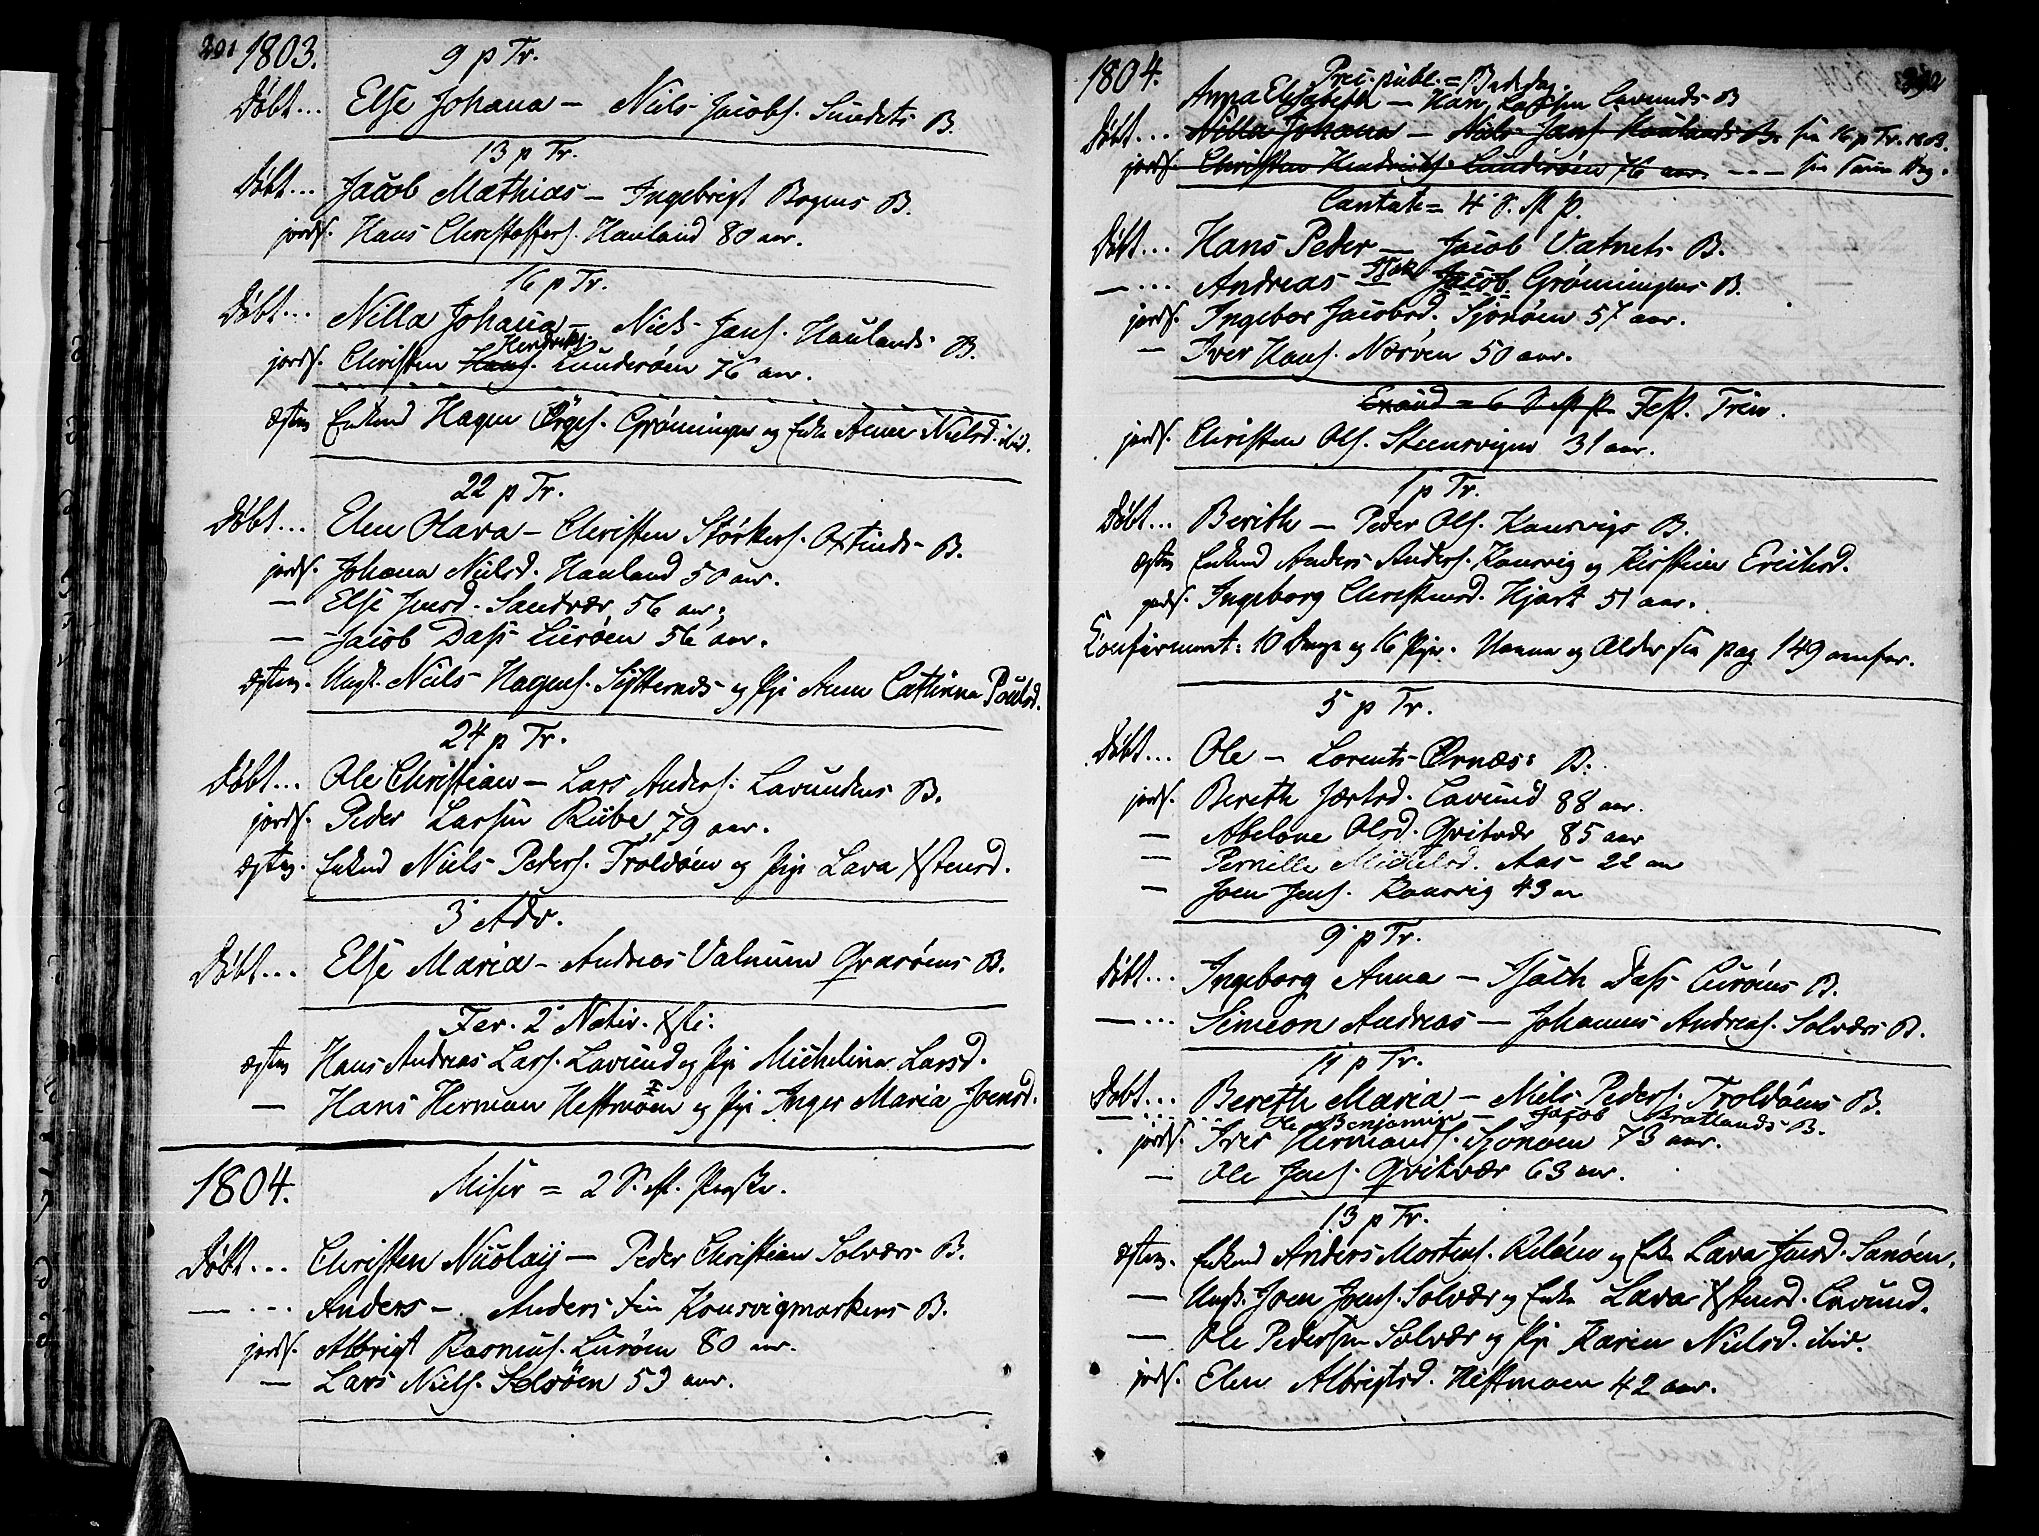 291 1803.
9 p Tr.
Døbt... Else Johana — Niels Jacobs. Sundets B.
13 p Tr.
Døbt... Jacob Mathias — Ingebrigt Bogens B.
jords. Hans Christoffers. Hauland 80 aar.
16 p Tr.
Døbt... Nilla Johana — Niels Jans. Haulands B.
Hendriks.
jords. Christen Hans. Lunderøen 76 aar.
Enkmd Hagen Ørges. Grønningen og Enke Anne Nielsd. ibid.
22 p Tr.
Døbt... Elen Olava — Christen Størkers. Oxtinds B.
jords. Johana Nielsd. Hauland 50 aar.
— Else Jensd. Sandvær 56 aar.
— Jacob Dass Lurøen 56 aar.
Ungk. Niels Hagens. Sistternes og Pige Anne Cathrina Paulsd.
24 p Tr.
Døbt... Ole Christian — Lars Anders. Lavundens B.
jords. Peder Larsen Riibe 79 aar.
Enkmd Niels Peders. Troldøen og Pige Lava Xstensd.
3 Adv.
Døbt... Else Maria — Andreas Valnum Qvarøens B.
Fer. 2 Nativ. Xsti:
Hans Andreas Lars. Lavund og Pige Michelina Larsd.
— Hans Herman Hestmøen og Pige Inger Maria Joensd.
1804. Miser = 2 S. eft. Paaske.
Døbt... Christen Nicolay — Peder Christian Solværs B.
— ... Anders — Anders Fin Konsvigmarkens B.
jords. Albrigt Rasmus. Lurøen 80 aar.
— Lars Niels. Selsøen 59 aar.
1804. 292
Bededag.
Anna Elisabeth — Han. Larsen Lavunds B
Døbt... Nilla Johana — Niels Jans. Haulands B. 16 p Tr. 1803.
jords. Christen Hendrichs. Lunderøen 76 aar. — — Dag.
Cantate = 4 S. eft P.
Døbt... Hans Peder — Jacob Vatnets B.
Isak
— ... Andreas — Jacob Grønningens B.
jords. Ingebor Jacobsd. Sjonøen 57 aar.
— Iver Hans. Nesøen 50 aar.
Exaud = 6 S. eft p. Fest. Trin.
jords. Christen Ols. Steensvigen 31 aar.
1 p Tr.
Døbt... Berith — Peder Ols. Konsvigs B.
Enkmd Anders Anders. Konsvig og Kirsten Erichsd.
jords. Ingeborg Christensd. Hjart 51 aar.
Confirmeret: 10 Drenge og 16 Piger. Navne og Alder see pag 149 ovenfor.
5 p Tr.
Døbt... Ole — Lorents Ørnæs: B.
jords. Bereth Jertsd. Lavund 88 aar.
— Abelone Olsd. Qvitvær 85 aar
— Pernille Michelsd. Aas 22 aar
— Joen Jens. Konsvig 43 aar
9 p Tr.
Døbt... Ingeborg Anna — Isach Dass Lurøens B.
— ... Simeon Andreas — Johannes Andreas. Solværs B.
11 p Tr.
Døbt... Bereth Maria — Niels Peders. Troldøens B.
— ... Ole Benjamin — Jacob Bratlands B.
jords. Iver Hermands. Sjonøen 73 aar.
— Ole Jens. Qvitvær 63 aar.
13 p Tr.
Enkmd Anders Mortens. Reløen og Enke Lava Joensd. Sanøen.
— Ungk. Joen Joens. Solvær og Enke Lava Xstensd. Lavund.
— Ole Pedersen Solvær og Pige Karen Nielsd. ibid.
jords. Elen Albrigtsd. Hestmoen 42 aar.